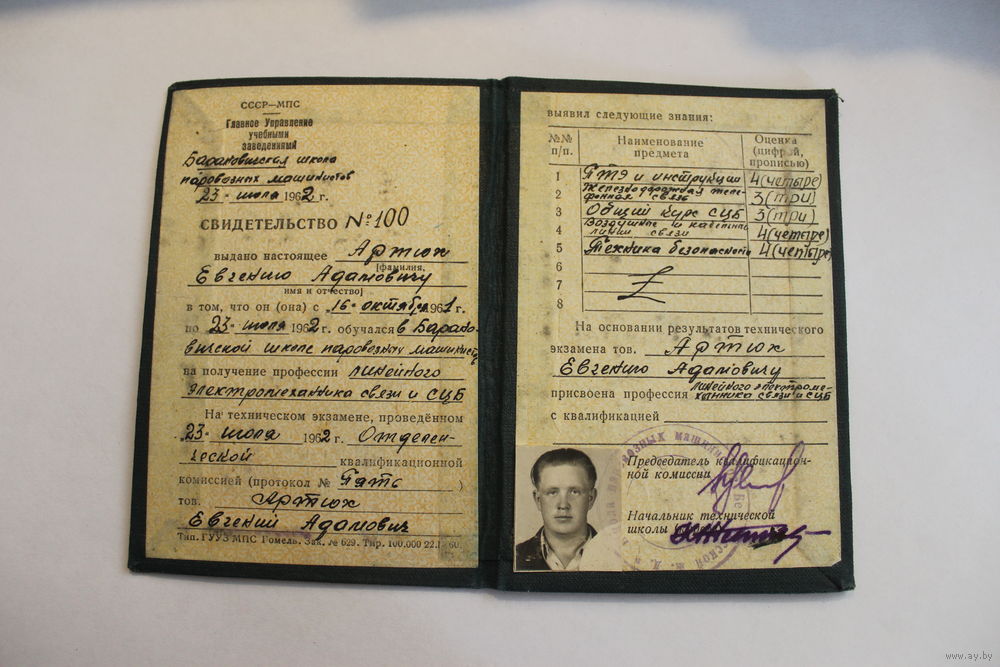 СССР—МПС
Главное Управление
учебными
заведениями
Барановичская школа
паровозных машинистов
23 - июля 1962 г.
СВИДЕТЕЛЬСТВО № 100
выдано настоящее Артюх
(фамилия,
Евгению Адамовичу
имя и отчество)
в том, что он (она) с 16 - октября 1961 г.
по 23 - июля 1962 г. обучался в Барано-
вичской школе паровозных машинистов
на получение профессии линейного
электромеханика связи и СЦБ
На техническом экзамене, проведённом
23 - июля 1962 г. Отделен-
ческой квалификационной
комиссией (протокол № Пять )
тов. Артюх
Евгений Адамович
Тип. ГУУЗ МПС Гомель. Зак. № 629. Тир. 100.000 60.
выявил следующие знания:
№№ п/п. Наименование предмета Оценка (цифрой, прописью)
1 ПТЭ и инструкции 4 (четыре)
2 Железнодорожная теле-
фонная связь 3 (три)
3 Общий курс СЦБ 3 (три)
4 Воздушные и кабельные
линии связи 4 (четыре)
5 Техника безопасности 4 (четыре)
6
7
8
На основании результатов технического
экзамена тов. Артюх
Евгению Адамовичу
присвоена профессия линейного электроме-
ханика связи и СЦБ
с квалификацией
Председатель квалификацион-
ной комиссии
Начальник технической
школы
www.ay.by